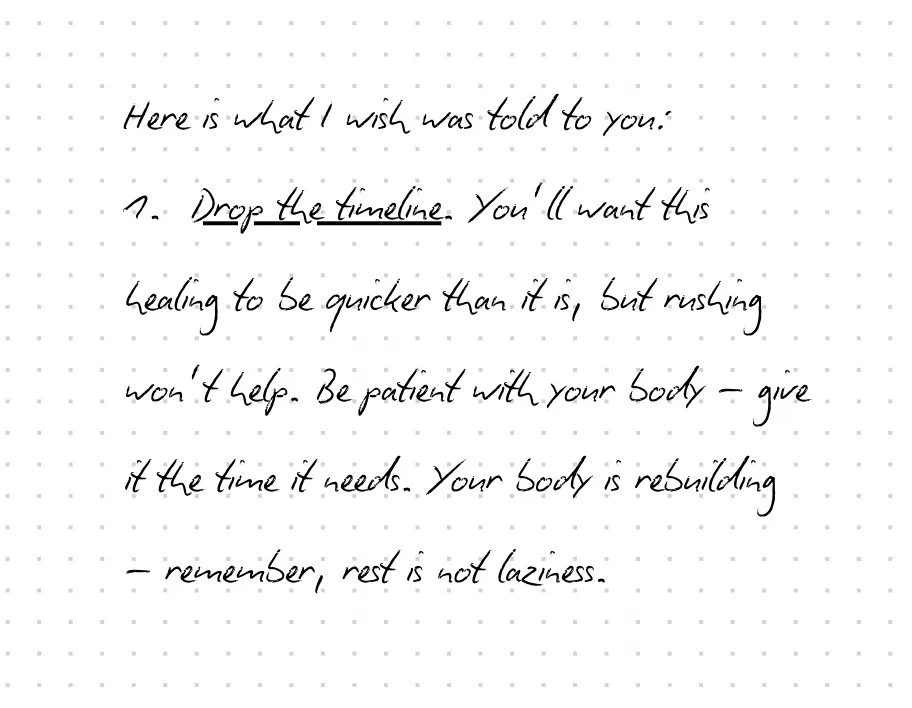 Here is what I wish was told to you:
1. Drop the timeline. You'll want this
healing to be quicker than it is, but rushing
won't help. Be patient with your body – give
it the time it needs. Your body is rebuilding
– remember, rest is not laziness.